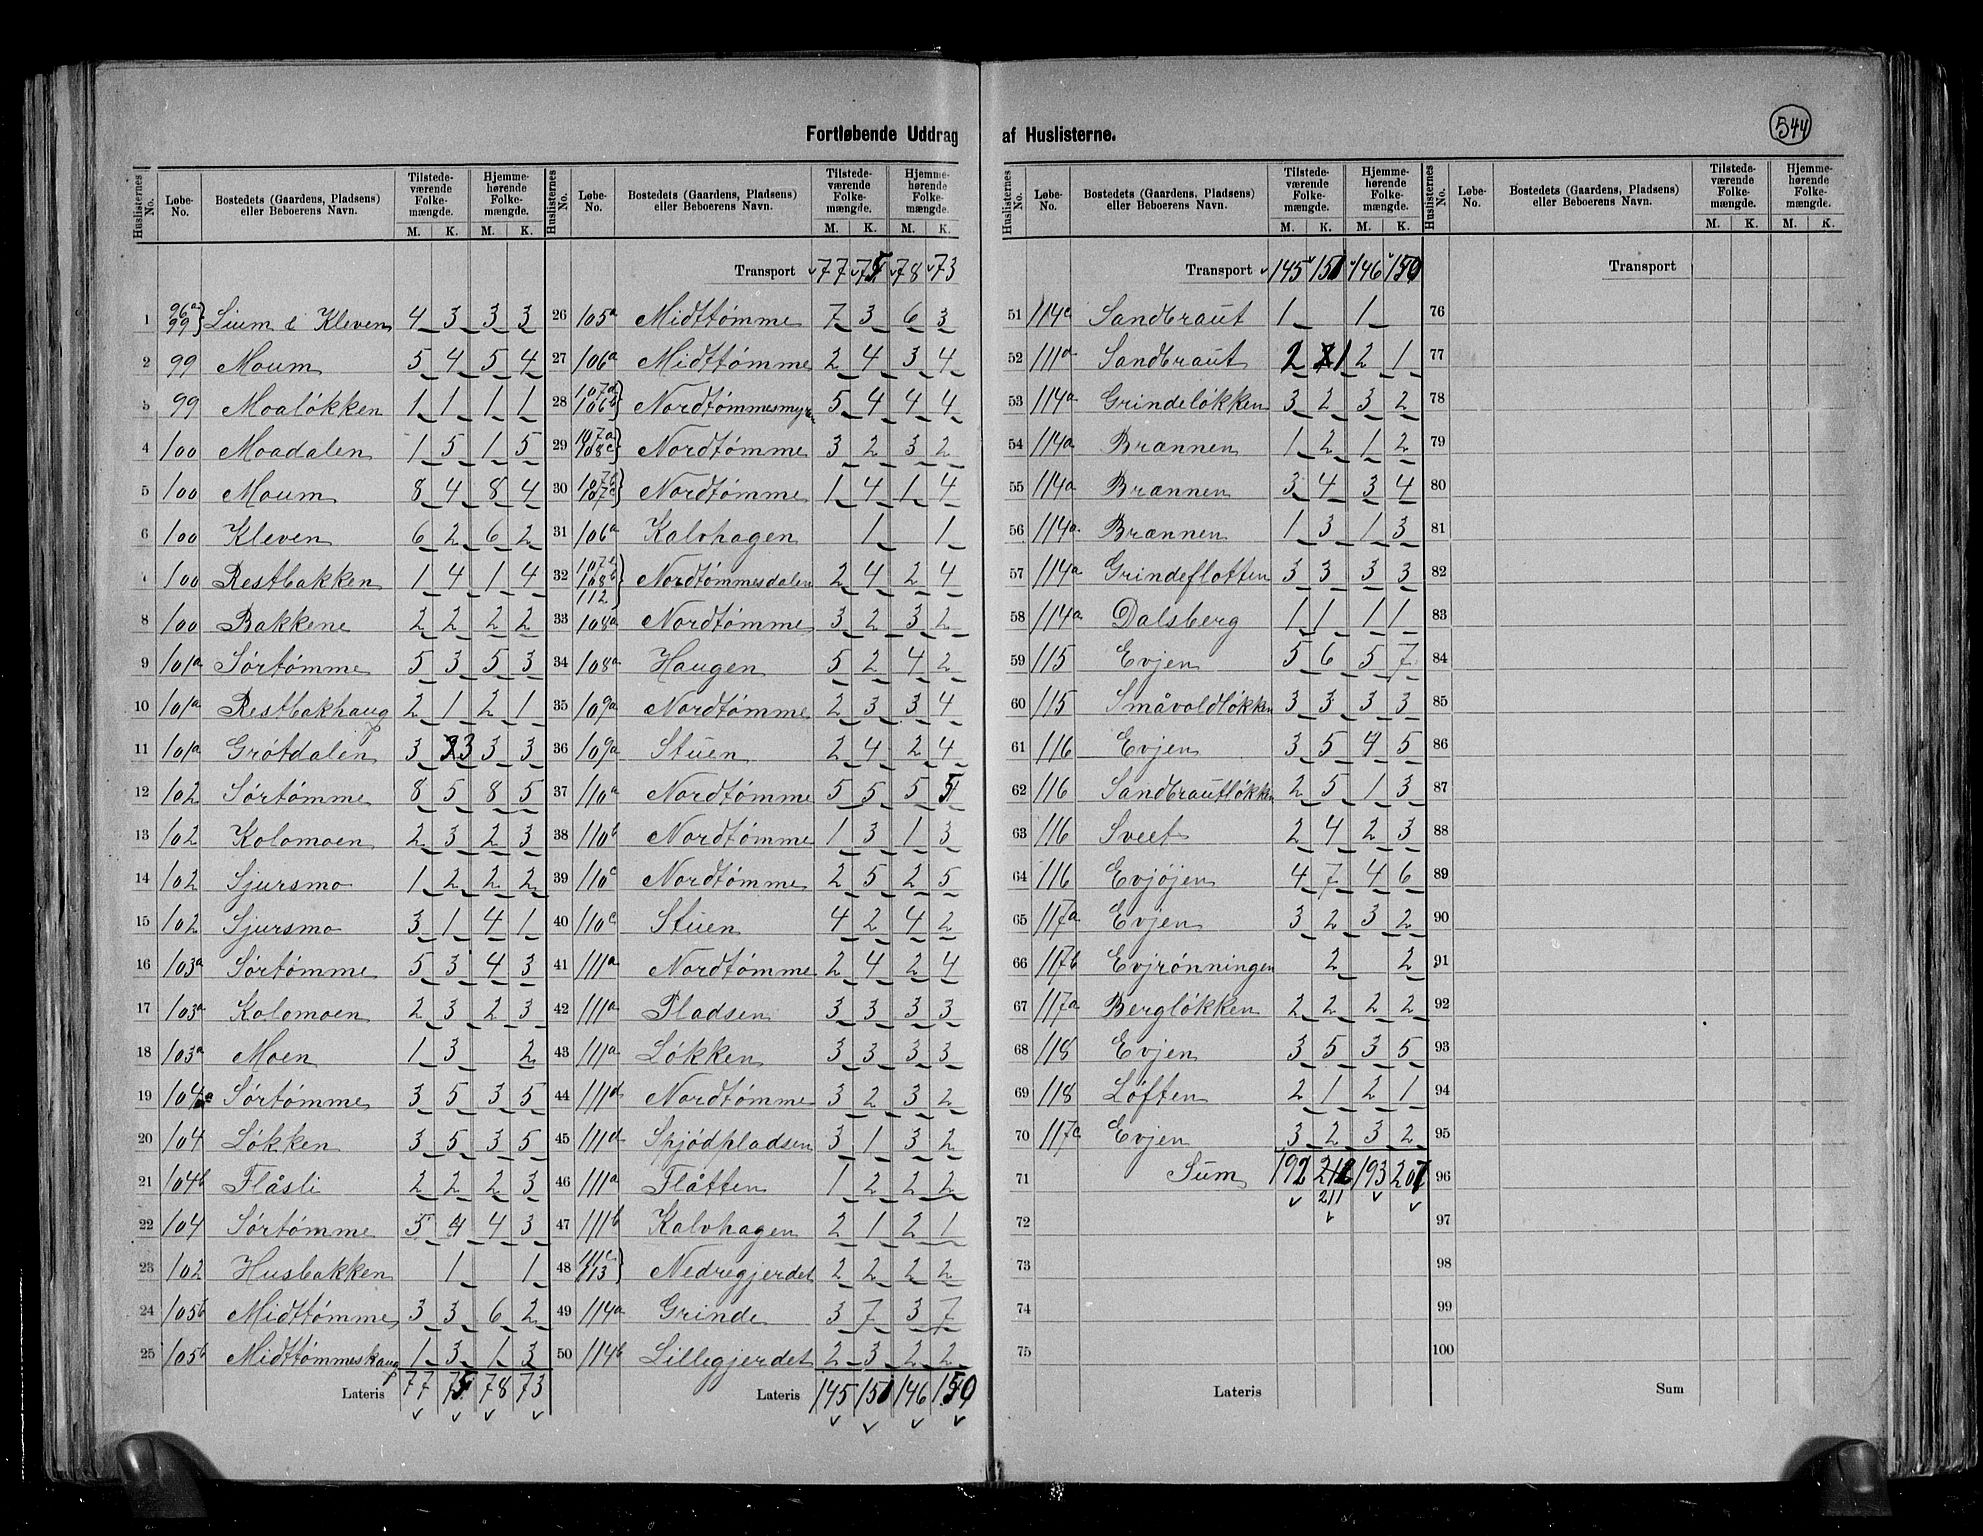 Fortløbende Uddrag af Huslisterne.
544
Huslisternes No. Løbe-No. Bostedets (Gaardens, Pladsens) eller Beboerens Navn. Tilstedeværende Folkemængde. M. K. Hjemmehørende Folkemængde. M. K.
1 96a 99 Lium & Kleven 4 3 3 3
2 99 Moum 5 4 5 4
3 99 Moaløkken 1 1 1 1
4 100 Moadalen 1 5 1 5
5 100 Moum 8 4 8 4
6 100 Kleven 6 2 6 2
7 100 Restbakken 1 4 1 4
8 100 Bakkene 2 2 2 2
9 101a Sørtømme 5 3 5 3
10 101a Restbakhaug 2 1 2 1
11 101a Grøtdalen 3 3 3 3
12 102 Sørtømme 8 5 8 5
13 102 Kolomoen 2 3 2 3
14 102 Sjursmo 1 2 2 2
15 102 Sjursmo 3 1 4 1
16 103a Sørtømme 5 3 4 3
17 103a Kolomoen 2 3 2 3
18 103a Moen 1 3 2
19 104a Sørtømme 3 5 3 5
20 104 Løkken 3 5 3 5
21 104b Flåsli 2 2 2 3
22 104 Sørtømme 5 4 4 3
23 102 Husbakken 1 1
24 105b Midttømme 3 3 6 2
25 105b Midttømmeshaug 1 3 1 3
Lateris 77 75 78 73
Huslisternes No. Løbe-No. Bostedets (Gaardens, Pladsens) eller Beboerens Navn. Tilstedeværende Folkemængde. M. K. Hjemmehørende Folkemængde. M. K.
Transport 77 75 78 73
26 105a Midttømme 7 3 6 3
27 106a Midttømme 2 4 3 4
28 107d 106b Nordtømmesmyren 5 4 4 4
29 107a 108c Nordtømme 3 2 3 2
30 107b 107c Nordtømme 1 4 1 4
31 106a Kalvhagen 1 1
32 107d 108b 112 Nordtømmesdalen 2 4 2 4
33 108a Nordtømme 3 2 3 2
34 108a Haugen 5 2 4 2
35 109a Nordtømme 2 3 3 4
36 109a Stuen 2 4 2 4
37 110a Nordtømme 5 5 5 5
38 110b Nordtømme 1 3 1 3
39 110c Nordtømme 2 5 2 5
40 110c Stuen 4 2 4 2
41 111a Nordtømme 2 4 2 4
42 111a Pladsen 3 3 3 3
43 111a Løkken 3 3 3 3
44 111d Nordtømme 3 2 3 2
45 111d Spjødpladsen 3 1 3 2
46 111a Flåtten 1 2 2 2
47 111b Kalvhagen 2 1 2 1
48 111c 113 Nedregjerdet 2 2 2 2
49 114a Grinde 3 7 3 7
50 114b Lillegjerdet 2 3 2 2
Lateris 145 151 146 150
Huslisternes No. Løbe-No. Bostedets (Gaardens, Pladsens) eller Beboerens Navn. Tilstedeværende Folkemængde. M. K. Hjemmehørende Folkemængde. M. K.
Transport 145 151 146 150
51 114c Sandbraut 1 1
52 111d Sandbraut 2 1 2 1
53 114a Grindeløkken 3 2 3 2
54 114a Brænnen 1 2 1 2
55 114a Brænnen 3 4 3 4
56 114a Brænnen 1 3 1 3
57 114a Grindeflotten 3 3 3 3
58 114a Dalsberg 1 1 1 1
59 115 Evjen 5 6 5 7
60 115 Småvoldløkken 3 3 3 3
61 116 Evjen 3 5 4 5
62 116 Sandbrautløkken 2 5 1 3
63 116 Sveet 2 4 2 3
64 116 Evjøjen 4 7 4 6
65 117a Evjen 3 2 3 2
66 117b Evjrønningen 2 2
67 117a Bergløkken 2 2 2 2
68 118 Evjen 3 5 3 5
69 118 Løften 2 1 2 1
70 117c Evjen 3 2 3 2
71 Sum 192 212 193 207
211
72
73
74
75
Lateris
Huslisternes No. Løbe-No. Bostedets (Gaardens, Pladsens) eller Beboerens Navn. Tilstedeværende Folkemængde. M. K. Hjemmehørende Folkemængde. M. K.
Transport
76
77
78
79
80
81
82
83
84
85
86
87
88
89
90
91
92
93
94
95
96
97
98
99
100
Sum